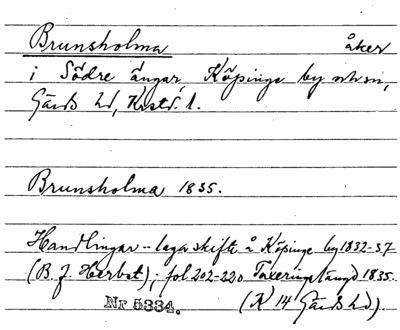 Brunsholma åker
i Södre ängar, Köpinge by o. sn,
Gärds hd, Krstd. l.
Brunsholma 1835.
Handlingar -- laga skifte å Köpinge by 1832-37
(B. J. Herbst); fol 202-220 Taxeringslängd 1835.
Nr 5334. (K 14 Gärds hd).